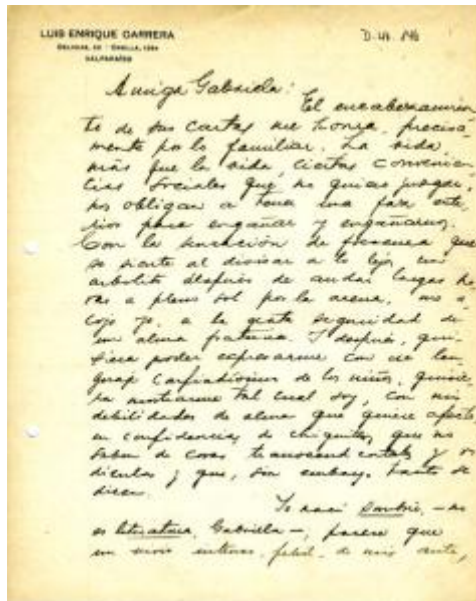 LUIS ENRIQUE CARRERA
CASILLA, 1384
VALPARAISO
Amiga Gabriela:
El encabezamien
to de sus cartas me honra, precisa
mente por lo familiar. La vida,
más que la vida, ciertas convenien
cias sociales que no quiero juzgar,
nos obligan a
para engañar y engañarnos.
Con la sensación de frescura que
se siente al divisar a lo lejos un
arbolito después de andar largas ho
ras a pleno sol por la arena, me a
cojo yo, a la grata seguridad de
un alma fraterna. I después, qui
siera poder expresarme con ese len
guaje confiadísimo de los niños, quisie
ra mostrarme tal cual soy, con mis
debilidades de alma que quiere afecto
en confidencias de chiquitos que no
saben de cosas transcendentales y ri
dículas y que, sin embargo, tanto se
dicen.
Yo nací sombrío, —no
es literatura, Gabriela—, parece que
un